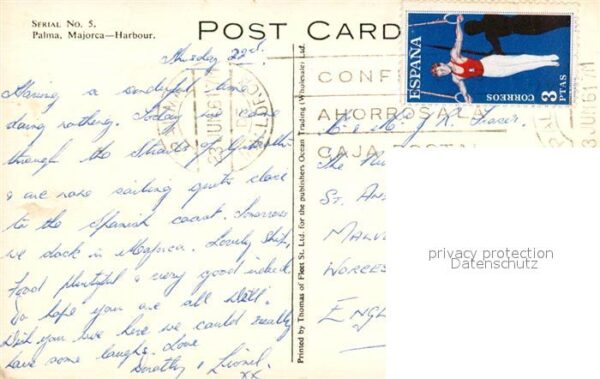 SERIAL No. 5.
Palma, Majorca—Harbour.
POST CARD
Thursday 22nd.
Having a wonderful time
doing nothing. Today we came
through the Straits of Gibraltar
& are now sailing quite close
to the Spanish coast. Tomorrow
we dock in Majorca. Lovely Ship,
Food plentiful & very good indeed.
Do hope you are all Well.
Wish you were here we could really
have some laughs. Love
Dorothy & Lionel.
xx
Printed by Thomas of Fleet St. Ltd. for the publishers Ocean Trading (Wholesale) Ltd.
ESPAÑA
CORREOS
3 PTAS
AHORROS A LA
CAJA POSTAL
23 JUN 61
23 JUN 61
The
ST.
MALV
WORCES
ENGL
privacy protection
Datenschutz